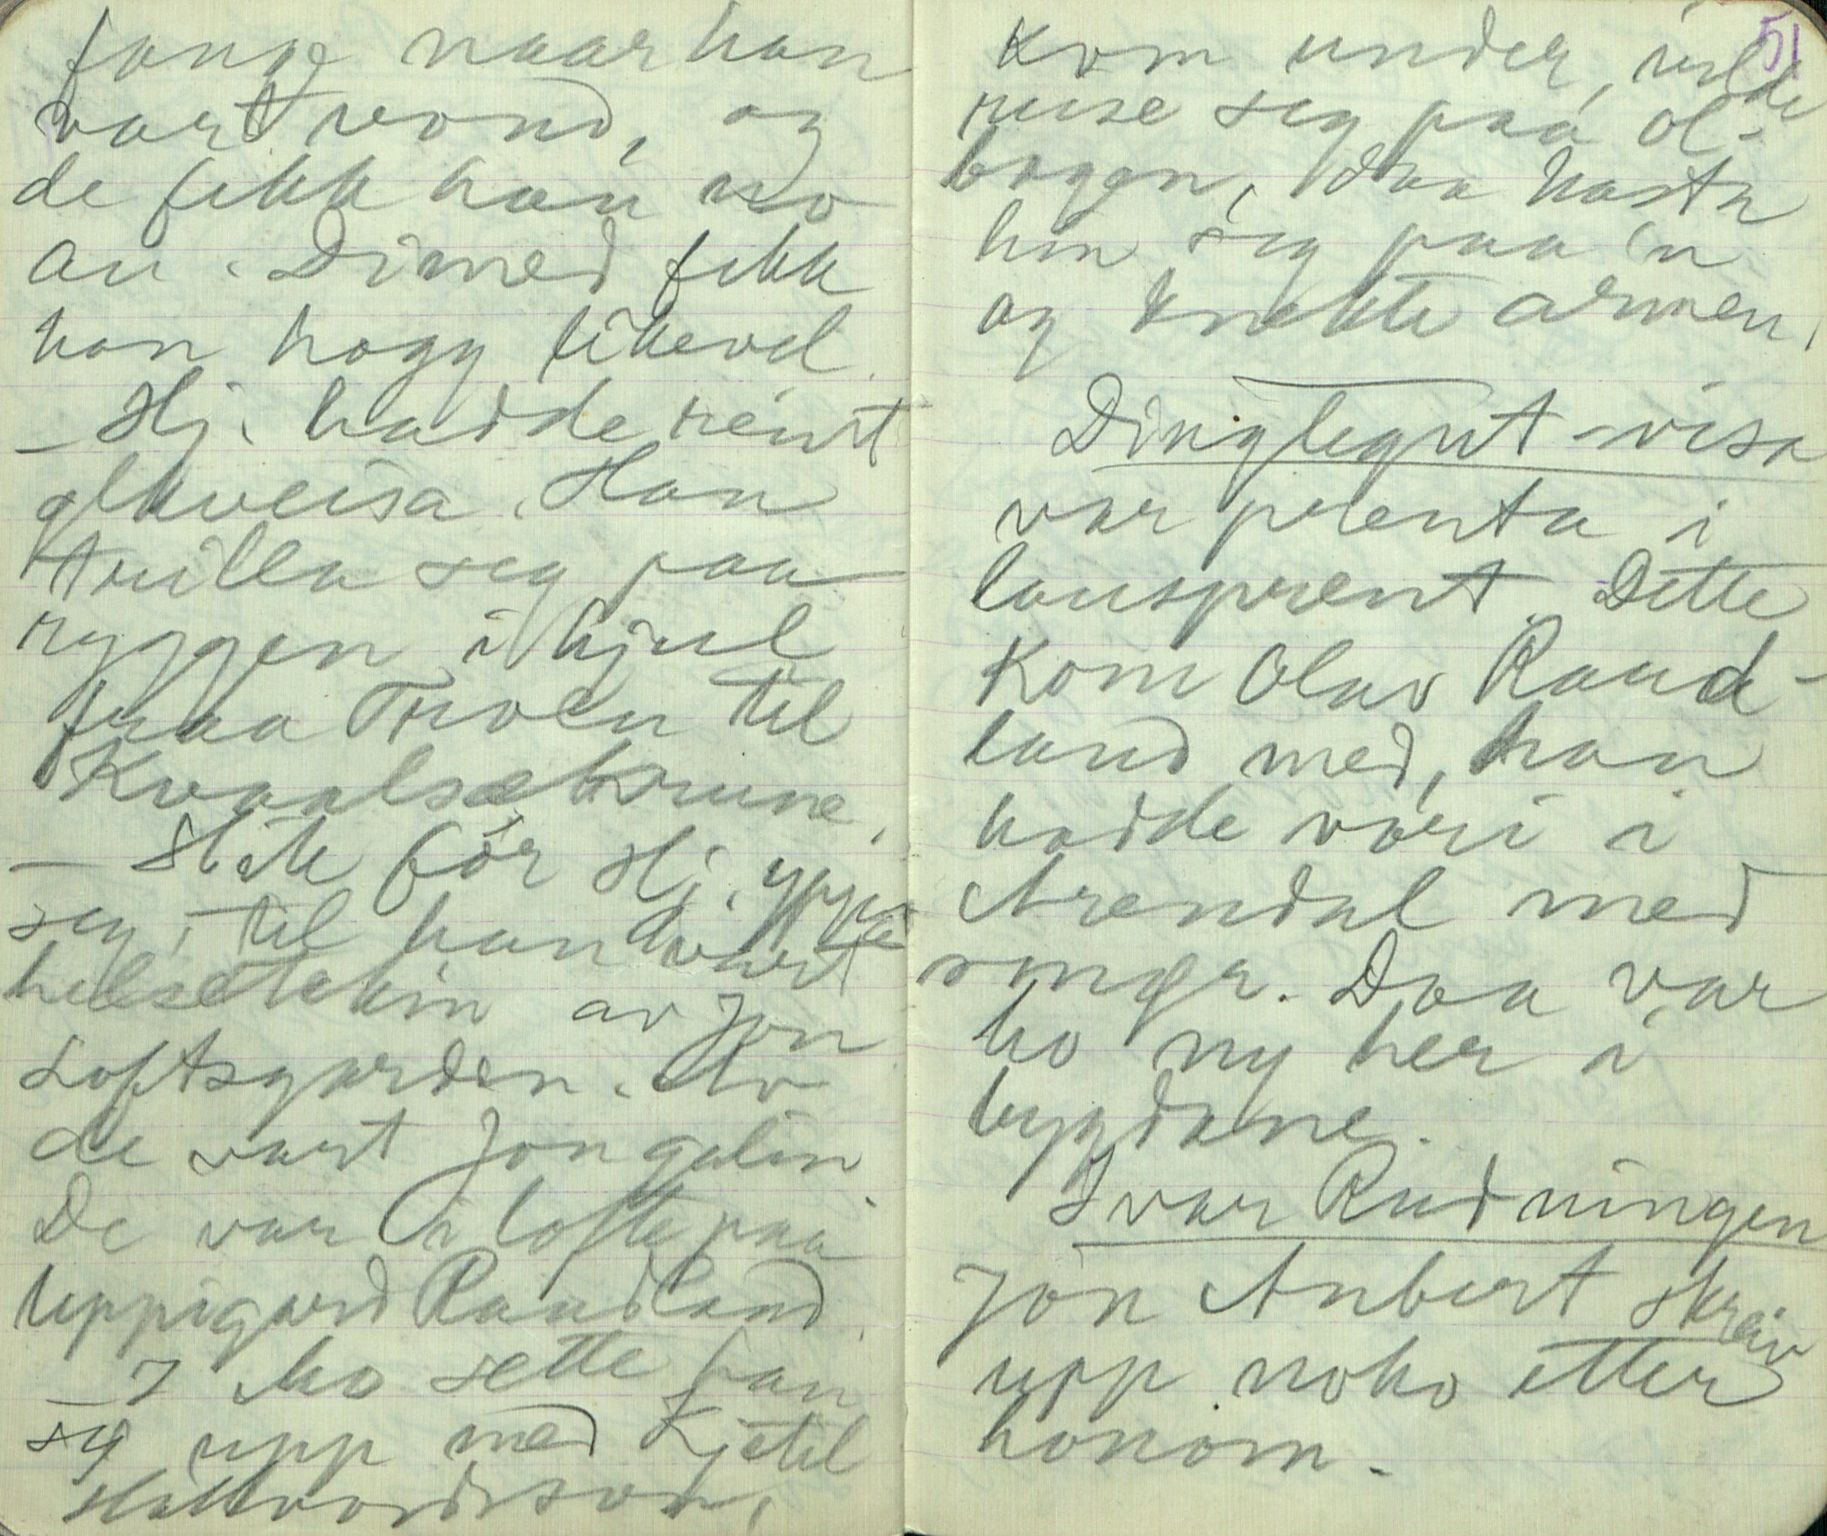 fange naar han
vart vond, og
de fekk han no
au. Dimed fekk
han hogg likevel.
- Hj. hadde reint
glkveisa. Han
trilla seg paa
ryggen i hjul
fraa Troen til
Kvaalsækrune.
- Slik fór Hj. yppa
seg, til han vart
helsetekin av Jon
Loftsgarden. Av
de vart Jon galin.
De var i lofte paa
uppigard Raudland.
- I Mo sette han
seg upp med Kjetil
Hallvordson,
51
kom under, vilde
reise seg paa ol-
bogen, daa kasta
hin seg paa 'n
og knekte armen.
Dinglegut-visa
var prenta i
lausprent. Dette
kom Olav Raud-
land med, han
hadde vori i
Arendal med
Daa var
ho ny her i
bygdane.
Ivar Rudningen
Jon Aubert skreiv
upp noko etter
honom.